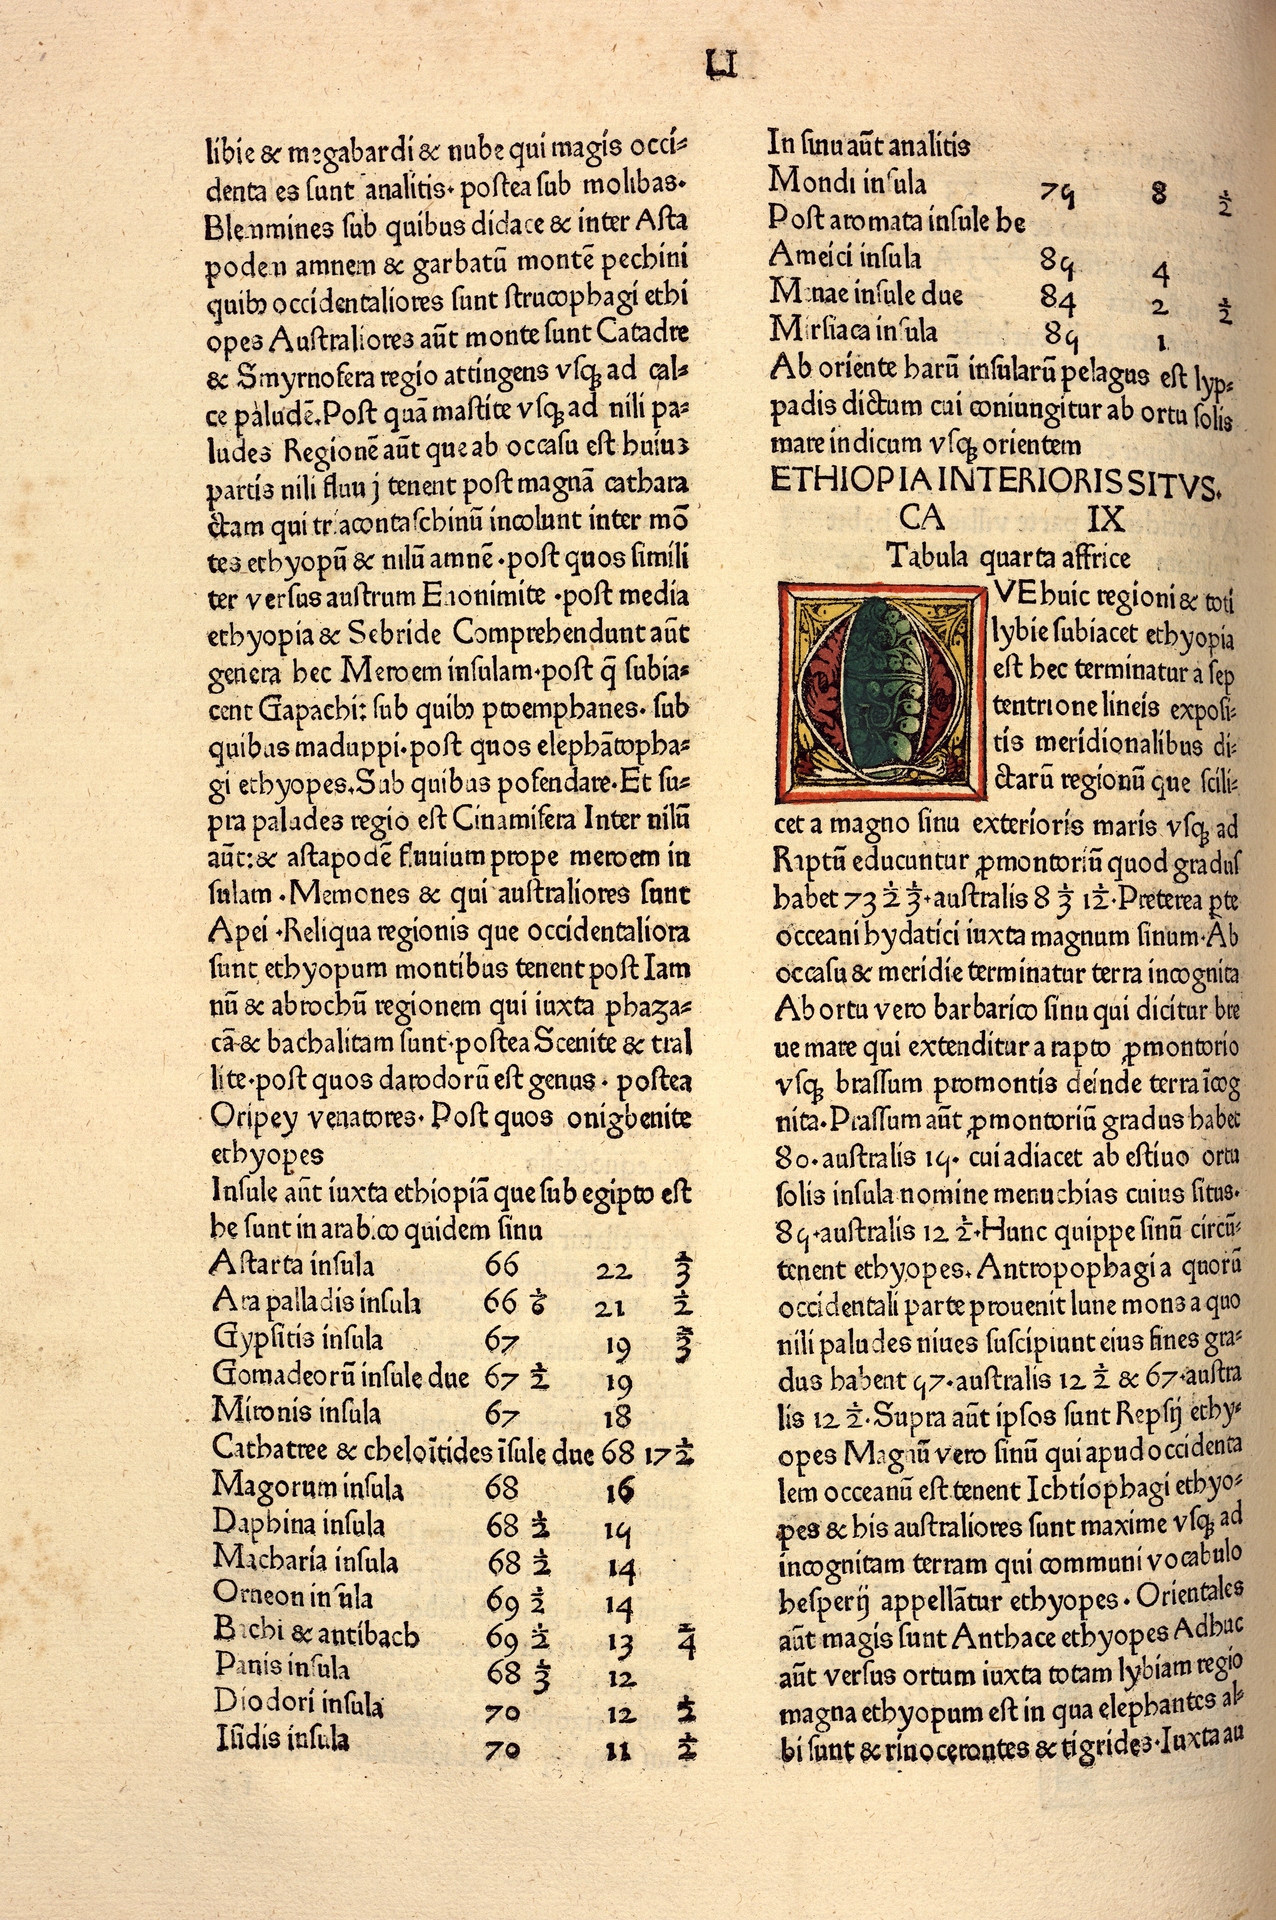 LI
libie & megabardi & nube qui magis occi⸗
denta es sunt analitis· postea sub molibas·
Blemmines sub quibus didace & inter Asta
poden amnem & garbatū montē pechini
quibꝫ occidentaliores sunt strucophagi ethi
opes Australiores aūt monte sunt Catadre
& Smyrnofera regio attingens vsqꝫ ad cal⸗
ce paludē.Post quā mastite vsqꝫ ad nili pa⸗
ludes Regionē aūt que ab occasu est huius
partis nili fluu j tenent post magnā cathara
ctam qui triacontaschinū incolunt inter mō
tes ethyopū & nilū amnē ·post quos simili
ter versus austrum Euonimite ·post media
ethyopia & Sebride Comprehendunt aūt
genera hec Meroem insulam·post q̄ subia⸗
cent Gapachi: sub quibꝫ ptoemphanes· sub
quibus maduppi·post quos elephātopha⸗
gi ethyopes.Sub quibus pesendare·Et su⸗
pra paludes regio est Cinamifera Inter nilū
aūt:& astapodē fluuium prope meroem in
sulam ·Memones & qui australiores sunt
Apei ·Reliqua regionis que occidentaliora
sunt ethyopum montibus tenent post Iam
nū & abrochū regionem qui iuxta phaza⸗
cā & bachalitam sunt·postea Scenite & tral
lite·post quos darodorū est genus · postea
Oripey venatores· Post quos onigbenite
ethyopes
Insule aūt iuxta ethiopiā que sub egipto est
he sunt in arabico quidem sinu
Astarta insula 66 22 ⅓
Ara palladis insula 66 ⅙ 21 ½
Gypsitis insula 67 19 ⅔
Gomadeorū insule due 67 ½ 19
Mironis insula 67 18
Cathatree & cheloītides īsule due 68 17 ½
Magorum insula 68 16
Daphina insula 68 ½ 15
Macharia insula 68 ½ 14
Orneon insula 69 ½ 14
Bachi & antibach 69 ½ 13 ¼
Panis insula 68 ⅓ 12
Diodori insula 70 12 ½
Isidis insula 70 11 ½
In sinu aūt analitis
Mondi insula 75 8 ½
Post aromata insule he
Ameici insula 85 4
Menae insule due 84 2 ½
Mirsiaca insula 85 1
Ab oriente harū insularū pelagus est lyp⸗
padis dictum cui coniungitur ab ortu solis
mare indicum vsqꝫ orientem
ETHIOPIA INTERIORIS SITVS.
CA IX
Tabula quarta affrice
QVE huic regioni & toti
lybie subiacet ethyopia
est hec terminatur a sep
tentrione lineis exposi⸗
tis meridionalibus di⸗
ctarū regionū que scili⸗
cet a magno sinu exterioris maris vsqꝫ ad
Raptū educuntur ꝓmontoriū quod gradus
habet 73 ½ ⅓·australis 8 ⅓ 1½·Preterea ꝑte
occeani hydatici iuxta magnum sinum·Ab
occasu & meridie terminatur terra incognita
Ab ortu vero barbarico sinu qui dicitur bre
ue mare qui extenditur a rapto ꝓmontorio
vsqꝫ brassum promontis deinde terra īcog
nita·Prassum aūt ꝓmontoriū gradus habet
80·australis 15· cui adiacet ab estiuo ortu
solis insula nomine menuchias cuius situs·
85·australis 12 ½·Hunc quippe sinū circū⸗
tenent ethyopes. Antropophagi a quorū
occidentali parte prouenit lune mons a quo
nili paludes niues suscipiunt eius fines gra⸗
dus habent 57·australis 12 ½ & 67·austra
lis 12 ½·Supra aūt ipsos sunt Repsij ethy⸗
opes Magnū vero sinū qui apud occidenta
lem occeanū est tenent Ichtiophagi ethyo⸗
pes & his australiores sunt maxime vsqꝫ ad
incognitam terram qui communi vocabulo
hesperij appellātur ethyopes · Orientales
aūt magis sunt Anthace ethyopes Adhuc
aūt versus ortum iuxta totam lybiam regio
magna ethyopum est in qua elephantes al⸗
bi sunt & rinocerontes & tigrides·Iuxta au